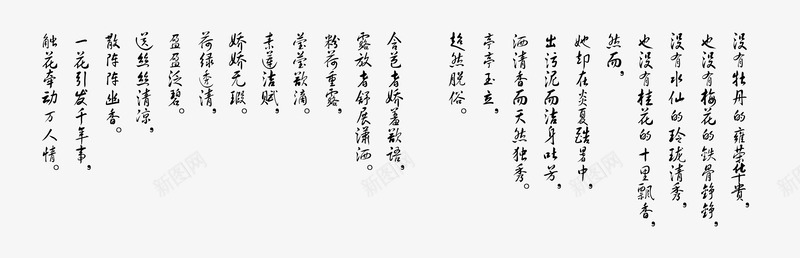 没有牡丹的雍荣华贵，
也没有梅花的铁骨铮铮，
没有水仙的玲珑清秀，
也没有桂花的十里飘香，
然而，
她却在炎夏酷暑中，
出污泥而洁身吐芳，
洒清香而天然独秀。
亭亭玉立，
超然脱俗。
含苞者娇羞欲语，
露放者舒展潇洒。
粉荷垂露，
莹莹欲滴。
素莲洁赋，
娇娇无瑕。
荷绿透清，
盈盈泛碧。
送丝丝清凉，
散阵阵幽香。
一花引发千年事，
触花牵动万人情。
新图网
新图网
新图网
新图网